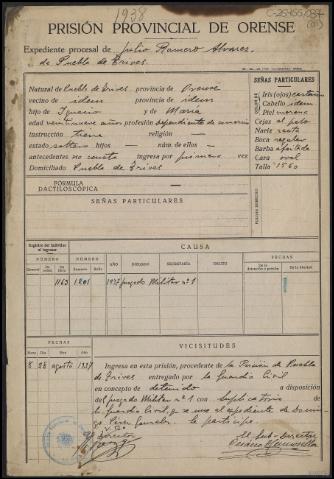 1938
C-25466/034
PRISIÓN PROVINCIAL DE ORENSE
Expediente procesal de Julio Romero Alvarez
de Puebla de Trives.
Natural de Puebla de Trives provincia de Orense
vecino de idem provincia de idem
hijo de Ignacio y de Maria
edad veintinueve años profesión dependiente de comercio
instrucción tiene religión —
estado soltero hijos — núm. de ellos —
antecedentes no consta ingresa por primera vez
Domiciliado Puebla de Trives
SEÑAS PARTICULARES
Iris (ojos) castaños
Cabello idem
Piel moreno
Cejas al pelo
Nariz recta
Boca regular
Barba afeitada
Cara oval
Talla 1'560
FÓRMULA DACTILOSCÓPICA
SEÑAS PARTICULARES
PULGAR DERECHO
CAUSA
FECHAS
AÑO JUZGADO SECRETARÍA DELITO
1163 1201 1937 juzgado Militar nº 1
FECHAS
VICISITUDES
Día Mes Año
8 28 agosto 1937 Ingresa en esta prisión, procedente de la Prisión de Puebla
de Trives entregado por la Guardia Civil
en concepto de detenido a disposición
del juzgado Militar nº 1 con
la Guardia Civil, que se une al expediente de
se participa.
Vº Bº
El Director
El Sub-Director